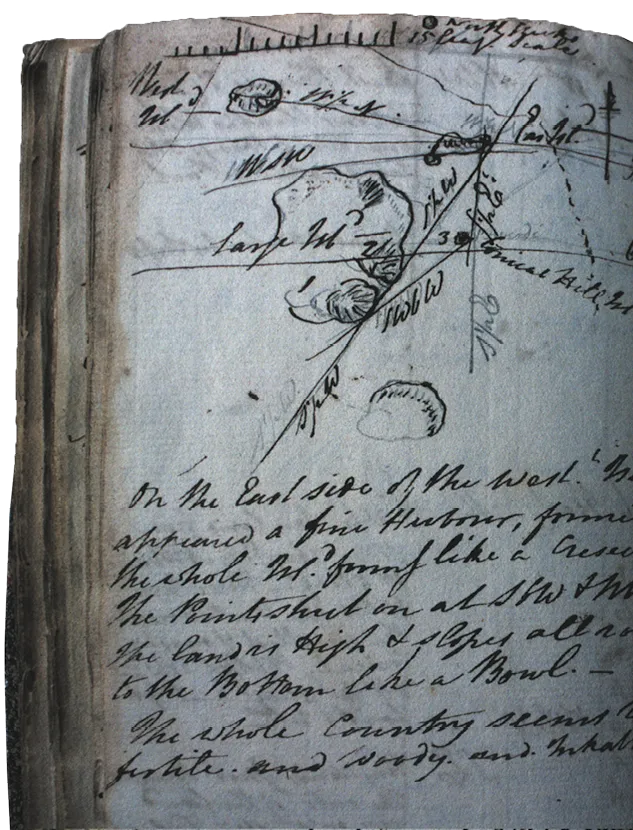 15 Leag. Scale
Isl.d
W½N.
East Isl.d
WSW
S½W
Large Isl.d
3
Conical Hill Isl
SWbW
S½E
S½W
On the East side of the west.t
appeared a fine Harbour, forme
the whole Isl.d forms like a Cresc
The Points shut on at SbW &
The land is High & slopes all ro
to the Bottom like a Bowl. —
The whole Country seems
fertile. and woody. and. Inhab